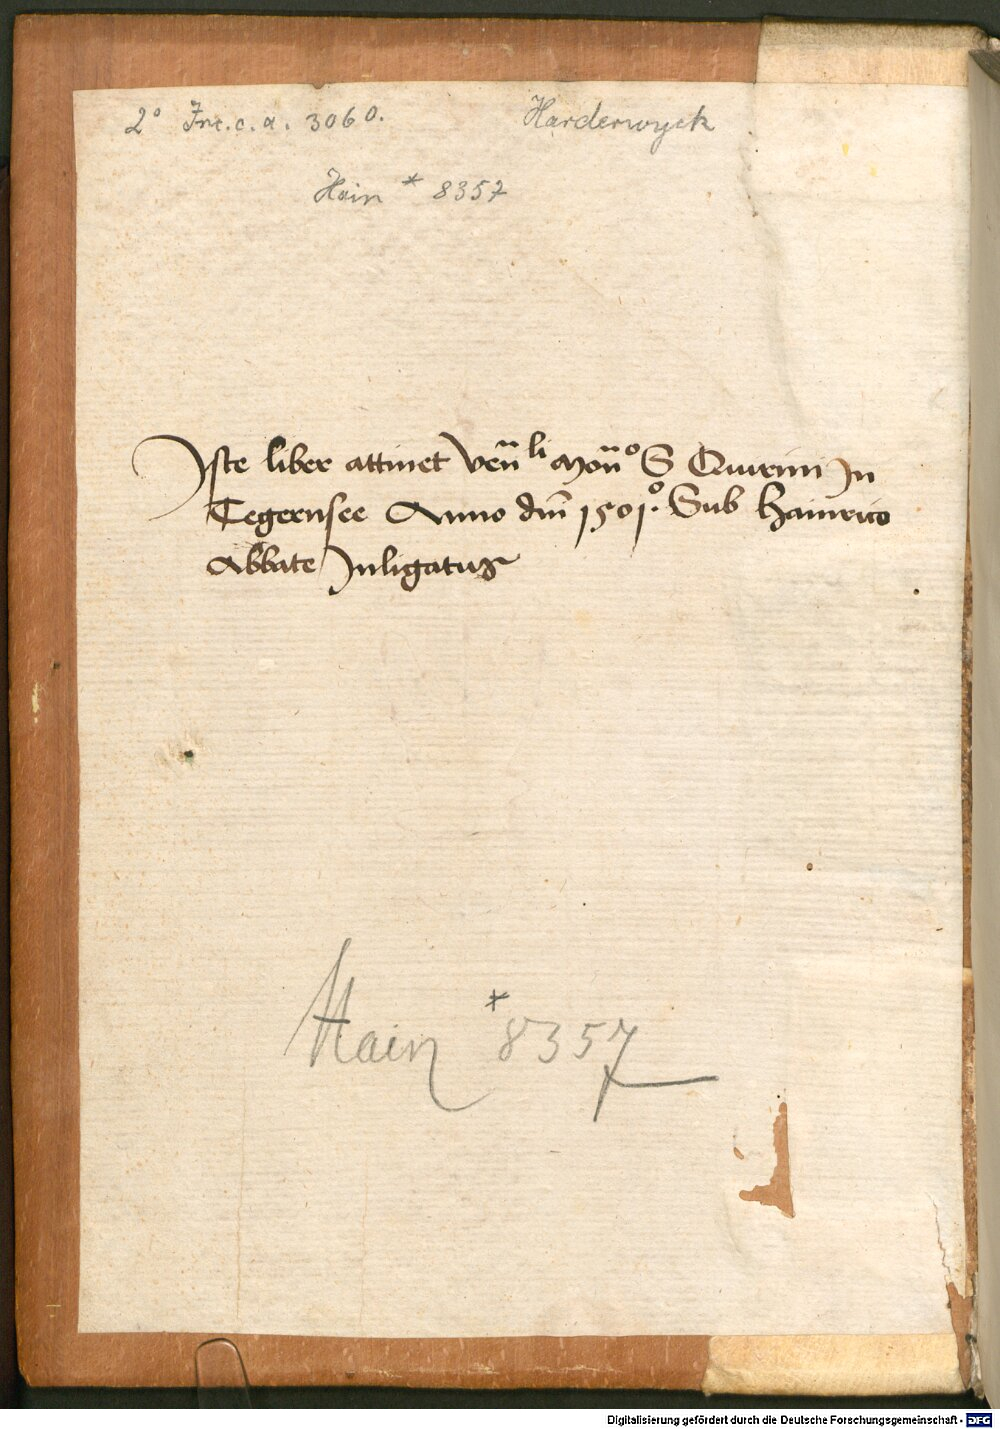 2° Inc. c. a. 3060.
Harderwyck
Hain * 8357
Iste liber attinet Ven̄li Mon̄o S Quirini In
Tegernsee Anno dn̄i 1501o. Sub Hainrico
Abbate Inligatus
Hain * 8357
Digitalisierung gefördert durch die Deutsche Forschungsgemeinschaft - DFG